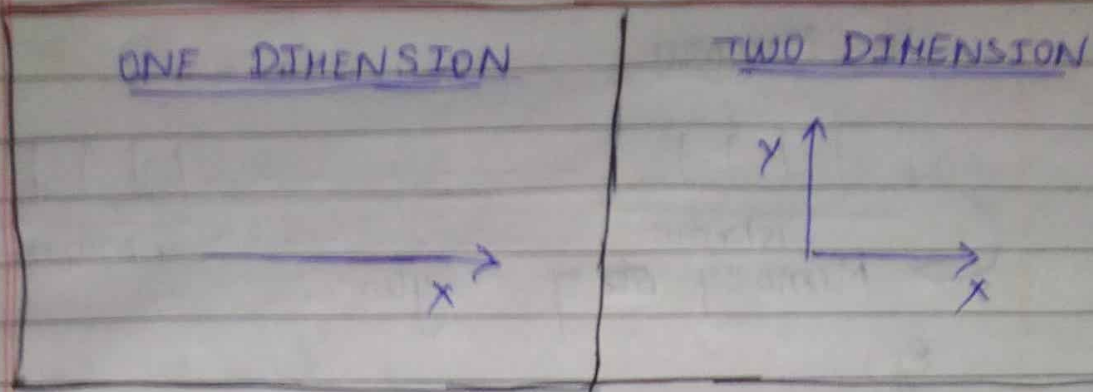 ONE DIMENSION
TWO DIMENSION
Y
X
X